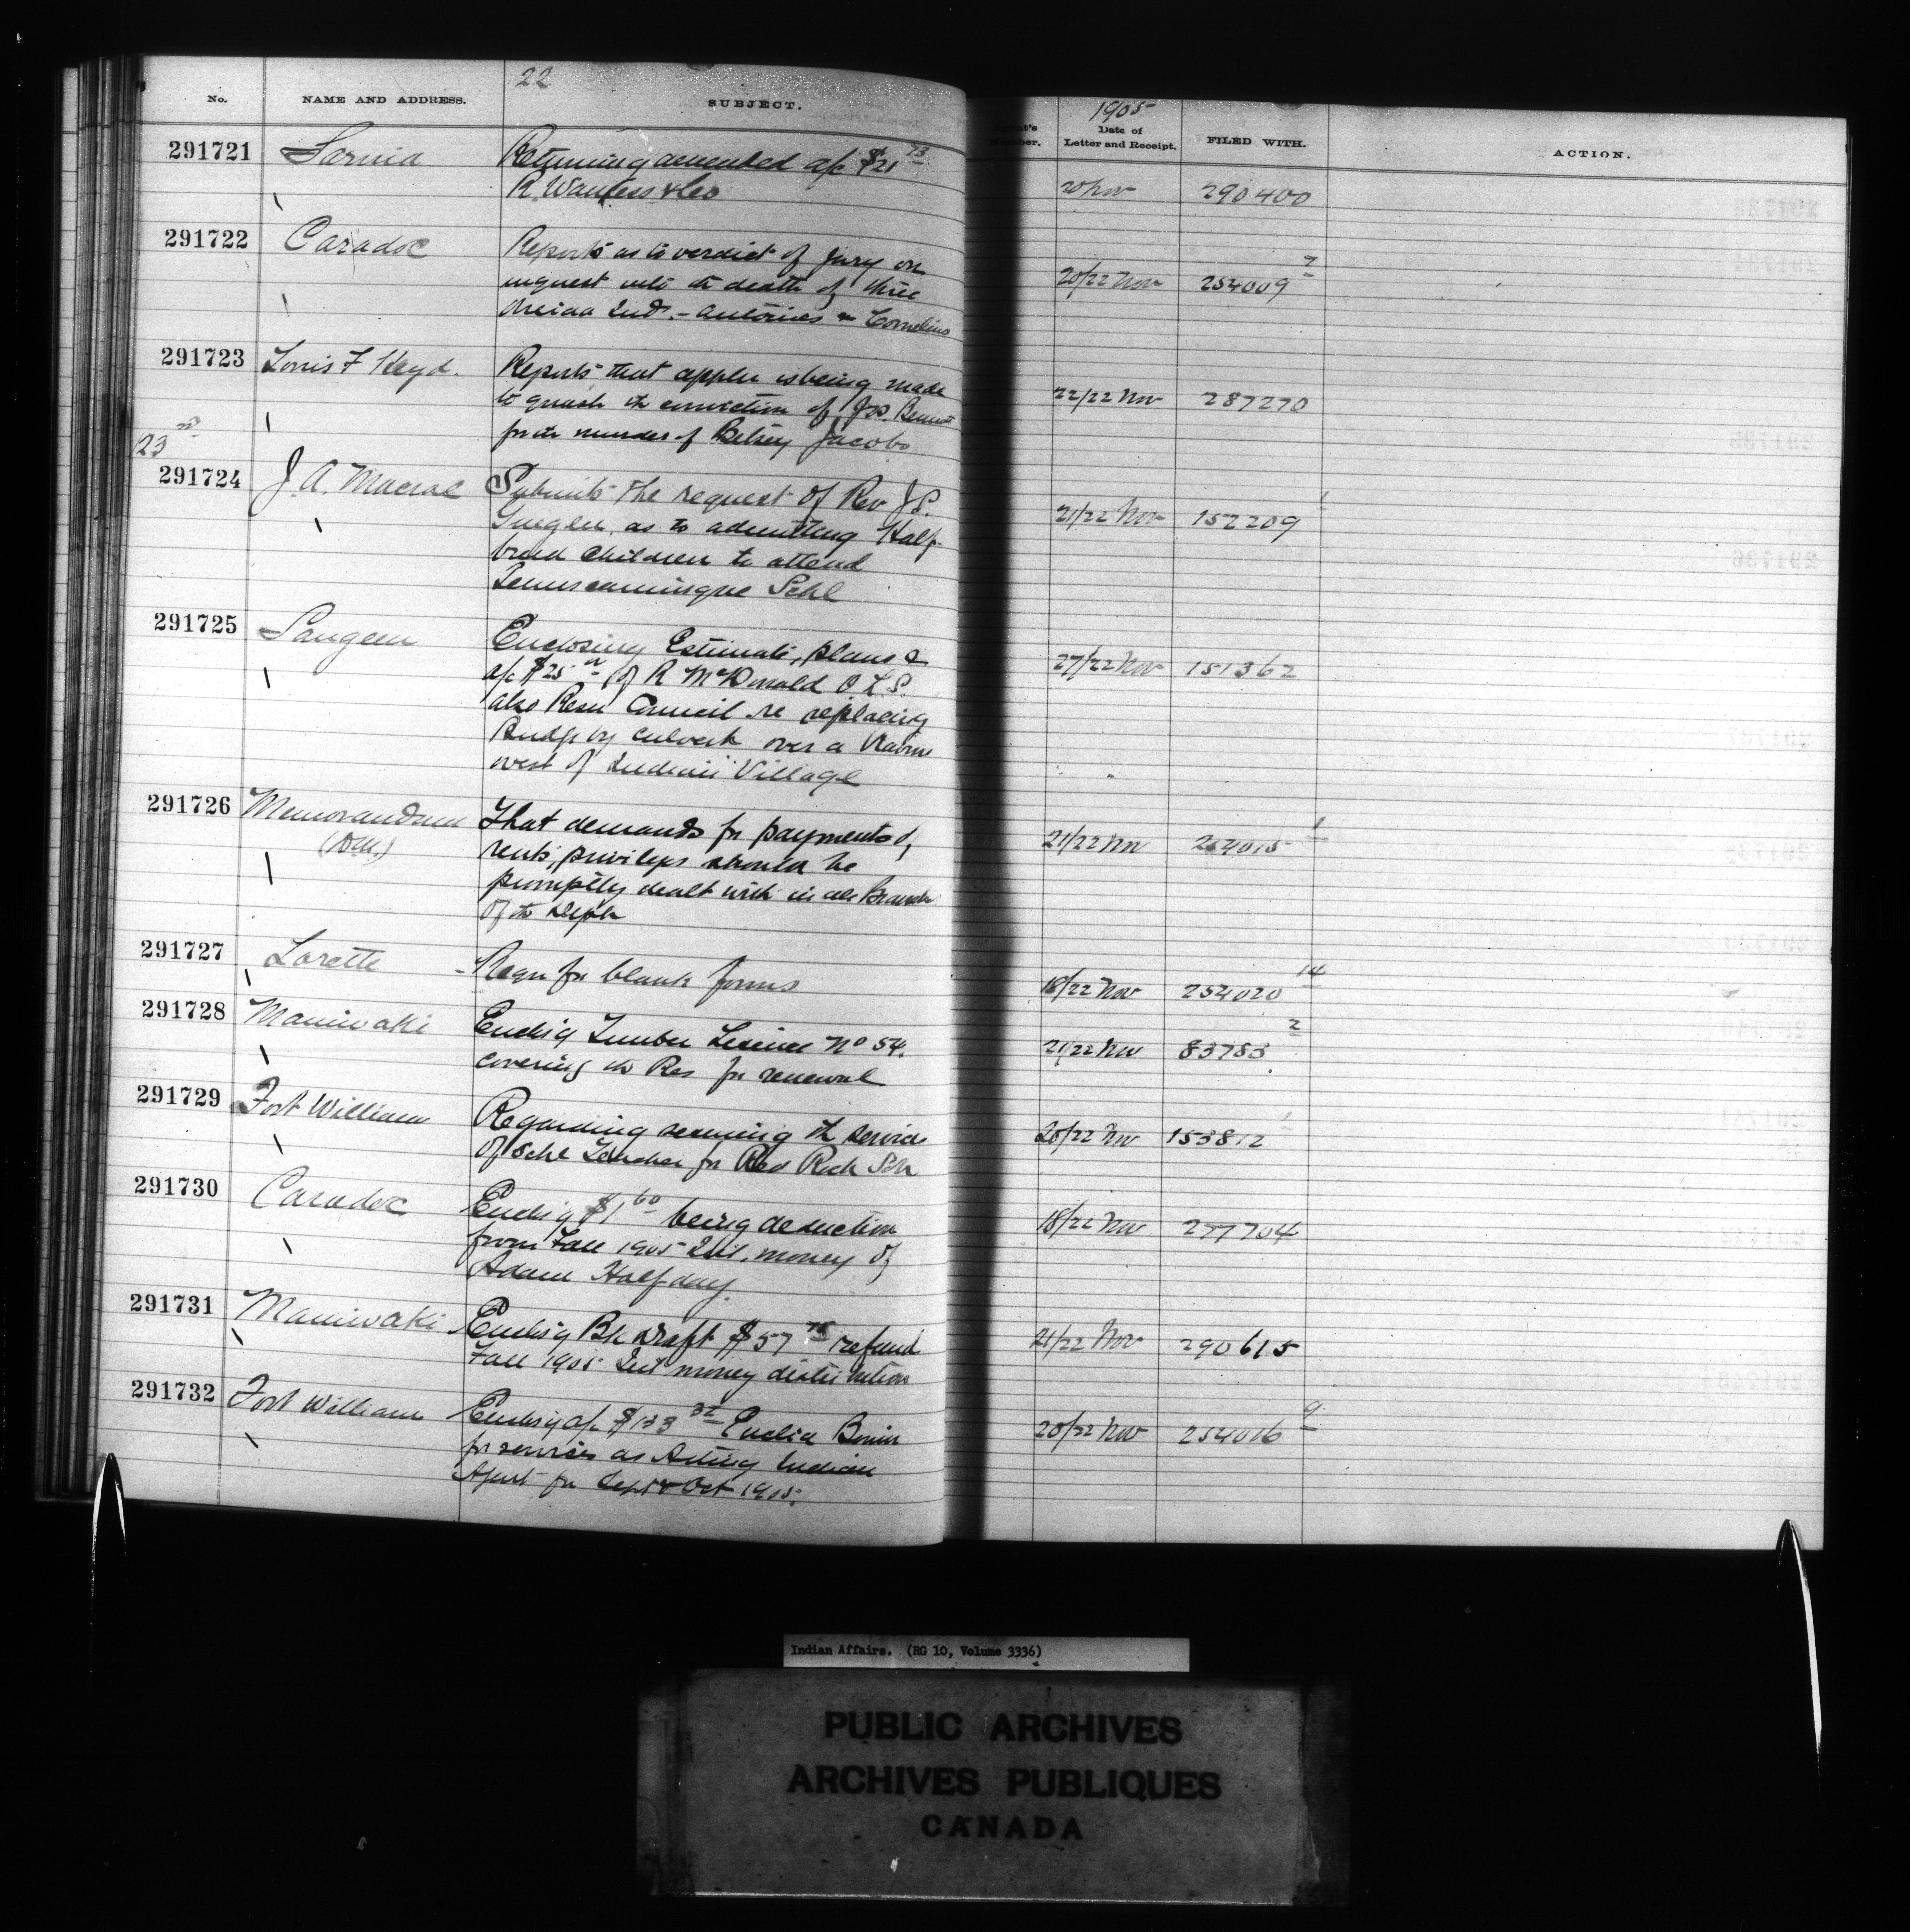 22
No. NAME AND ADDRESS. SUBJECT.
1905
Date of Letter and Receipt. FILED WITH. ACTION.
291721 Sarnia Returning amended a/c $21 73
R. Wanless & Co
20 Nov 290400
291722 Caradoc Reports as to verdict of jury on
inquest into th death of three
Oneida Inds. - Antoines & Cornelius
20/22 Nov 254009 7
291723 Louis F Heyd. Reports that appln is being made
to quash th conviction of Jos. Bennett
for th murder of Betsey Jacobs
22/22 Nov 287270
23rd
291724 J. A. Macrae Submits the request of Rev J.S.
as to admitting Half-
breed children to attend
Temiscamingue Schl
21/22 Nov 152209 1
291725 Saugeen Enclosing Estimate, plans &
a/c $25 of R McDonald O.L.S.
also Resn Council re replacing
Bridge by culvert over a Ravine
west of Indian Village
27/22 Nov 151362
291726 Memorandum That demands for payments of,
rents, privileges should be
promptly dealt with in all Branches
of th Dept
21/22 Nov 254015 1
291727 Lorette - Reqn for blank forms
18/22 Nov 254020 14
291728 Maniwaki Enclsig Timber License No 54.
covering th Res for renewal
21/22 Nov 83783 2
291729 Fort William Regarding securing th services
of Schl Teacher for Red Rock Sch
20/22 Nov 153812 1
291730 Caradoc Enclsig $1 60 being deduction
from Fall 1905 Int. money of
Adam Halfday.
18/22 Nov 277704
291731 Maniwaki Enclsig Bk draft $57 75 refund
Fall 1905 Int money distribution
21/22 Nov 290615
291732 Fort William Enclsig a/c $133 32 Euclid Bonin
for services as Acting Indian
Agent for Sept & Oct 1905.
20/22 Nov 254016 9
Indian Affairs. (RG 10, Volume 3336)
PUBLIC ARCHIVES
ARCHIVES PUBLIQUES
CANADA